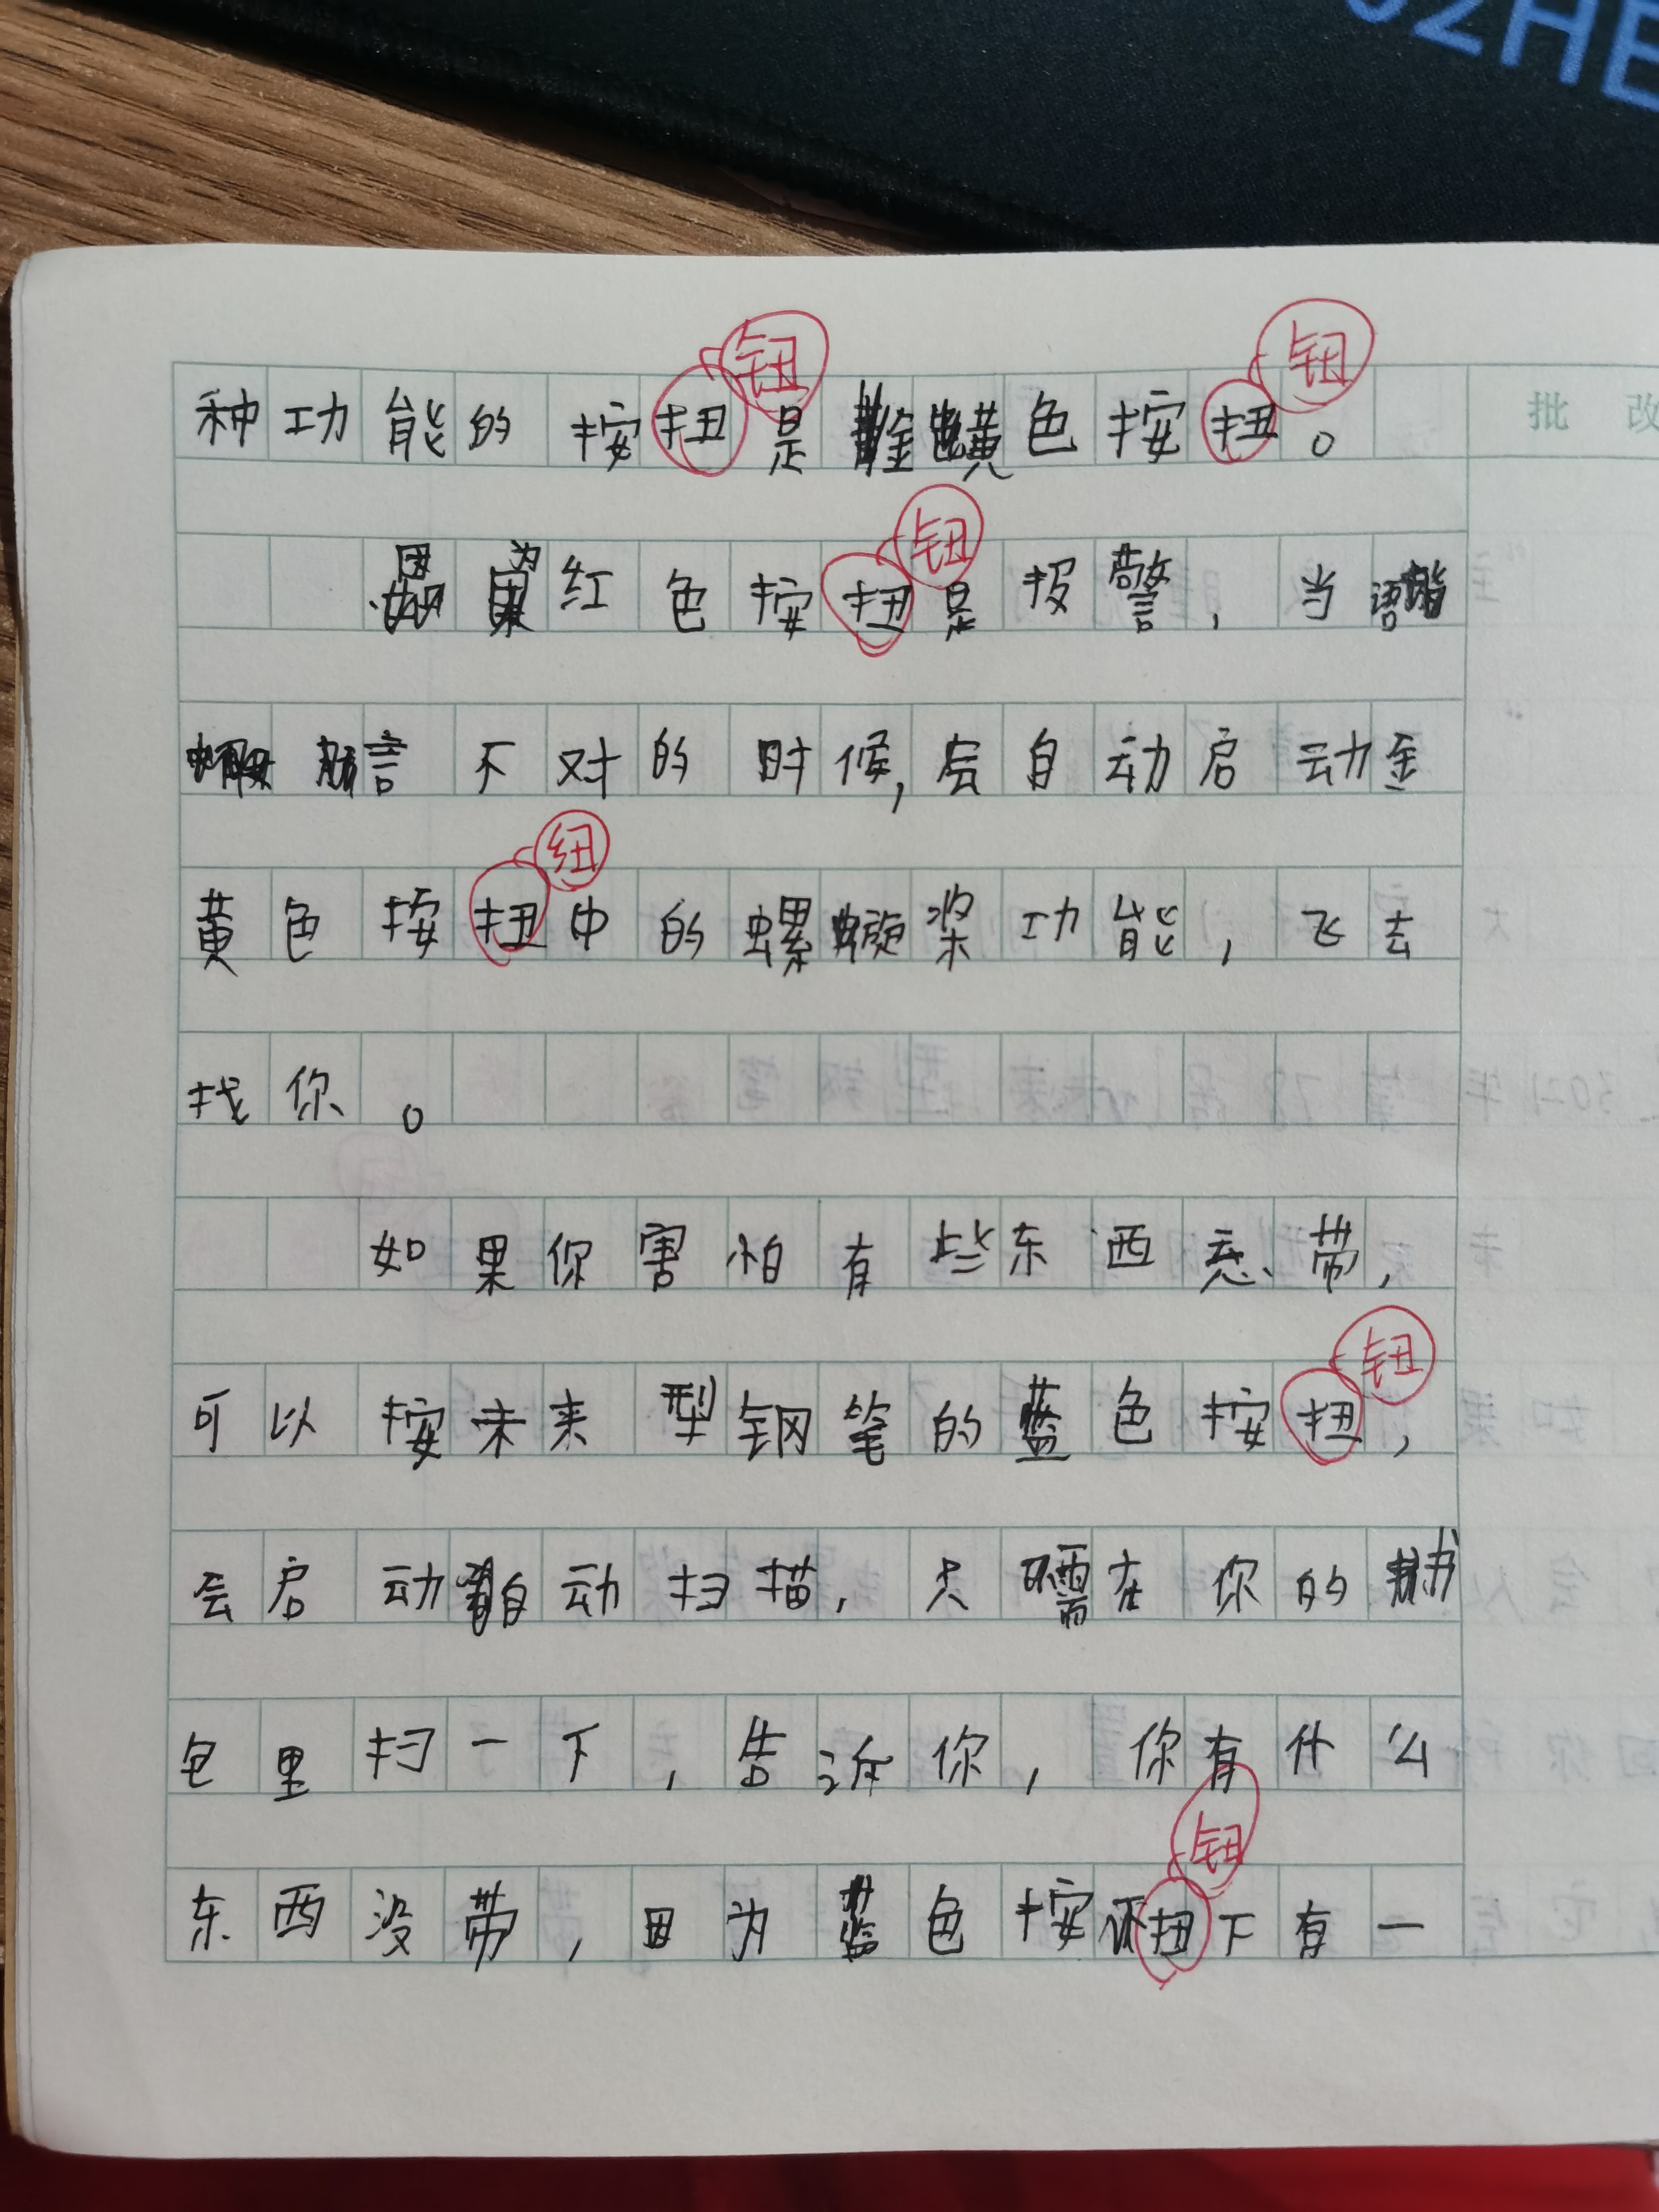 OZHE
批 改
钮 钮
种功能的按扭是金黄色按扭。
钮
因为红色按扭是报警，当语
言不对的时候，会自动启动金
纽
黄色按扭中的螺旋桨功能，飞去
找你。
如果你害怕有些东西忘带，
钮
可以按未来型钢笔的蓝色按扭，
会启动自动扫描，只需在你的书
包里扫一下，告诉你，你有什么
钮
东西没带，因为蓝色按扭下有一